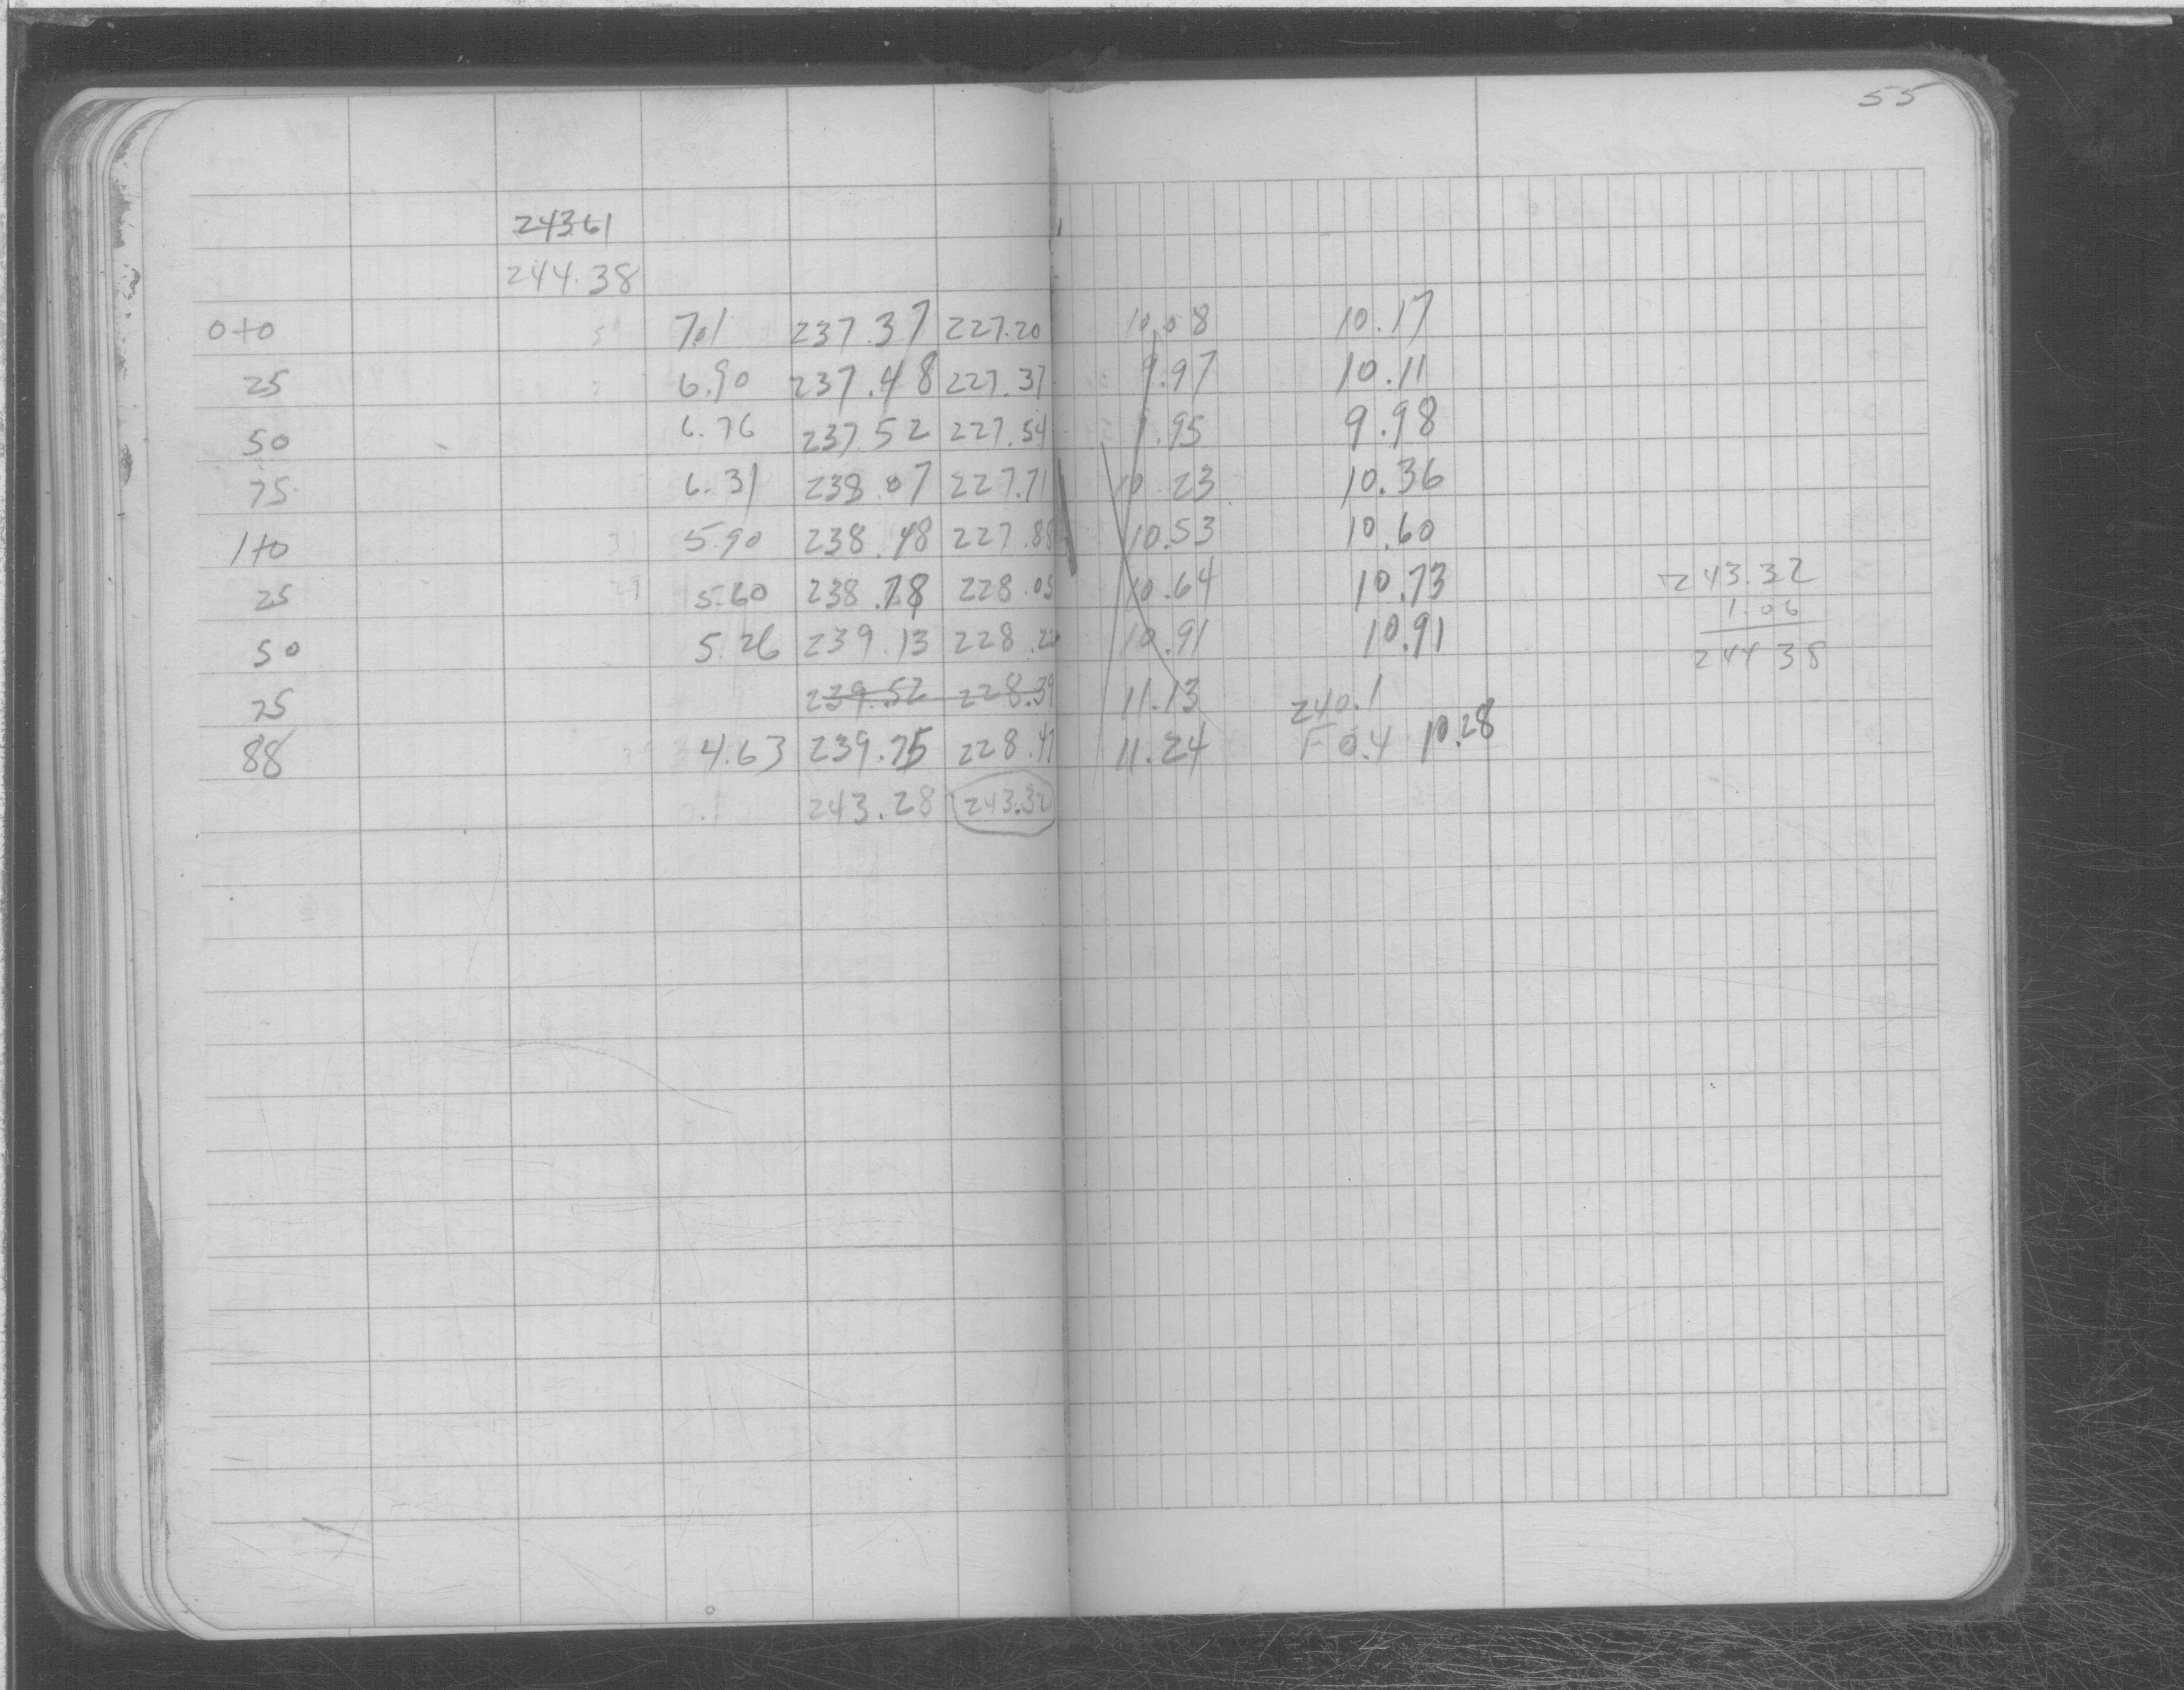 55
243.61
244.38
0+0 7.01 237.37 227.20 10.08 10.17
25 6.90 237.48 227.37 9.97 10.11
50 6.76 237.52 227.54 9.95 9.98
75 6.31 238.07 227.71 10.23 10.36
1+0 5.90 238.48 227.88 10.53 10.60
25 5.60 238.78 228.05 10.64 10.73 243.32
1.06
50 5.26 239.13 228.22 10.91 10.91 244 38
75 239.52 228.39 11.13 240.1
88 4.63 239.75 228.47 11.24 F 0.4 10.28
243.28 243.32